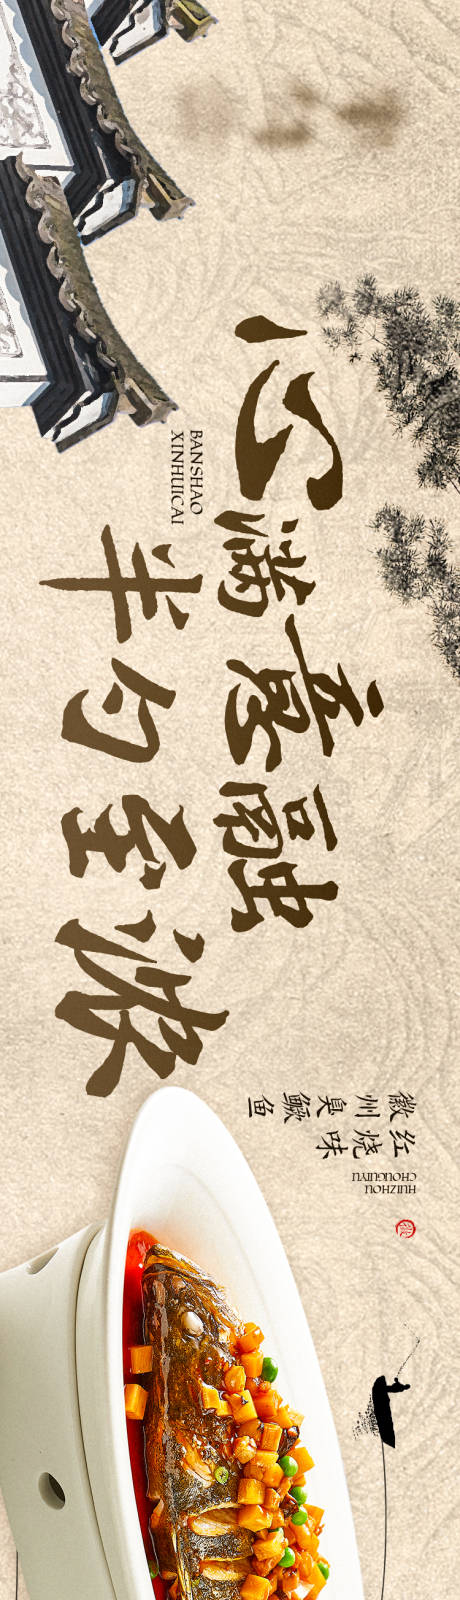 心满意融
半勺至浓
BANSHAO
XINHUICAI
红烧味
徽州臭鳜鱼
HUIZHOU
CHOUGUIYU